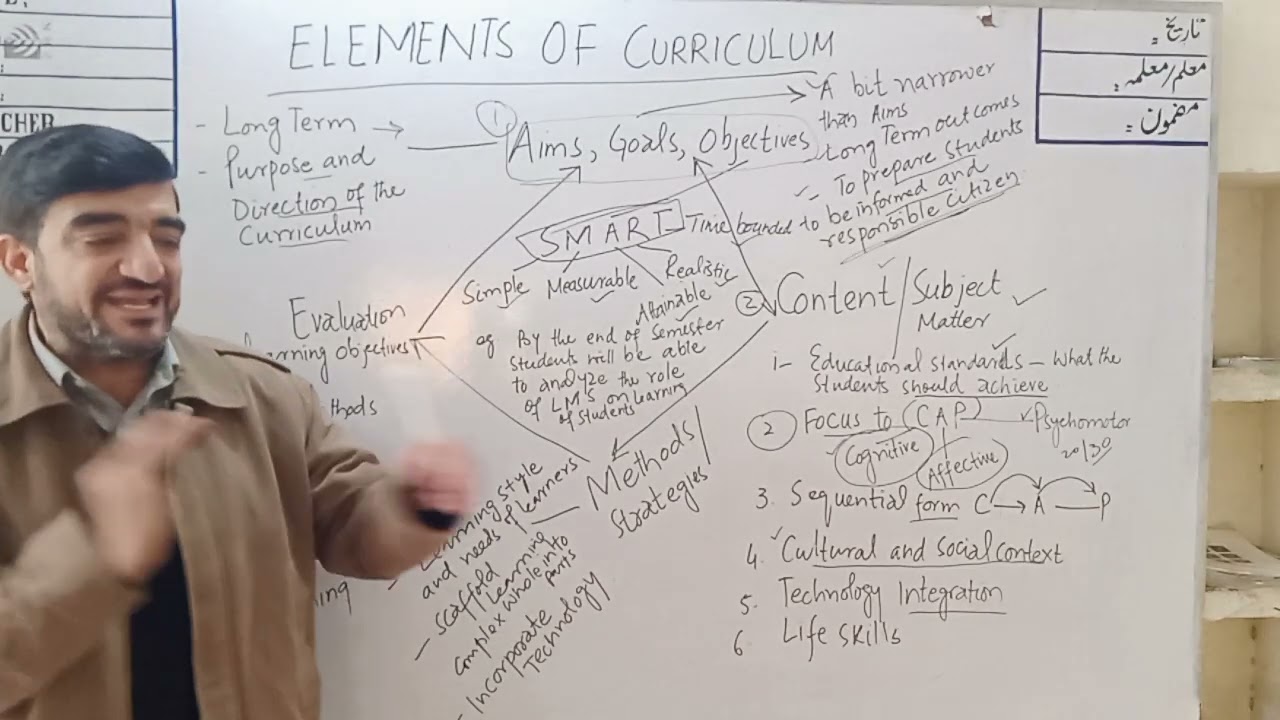 ELEMENTS OF CURRICULUM
تاریخ:
معلم/معلمہ:
مضمون:
CHER
- Long Term →
- Purpose and
Direction of the
Curriculum
① Aims, Goals, Objectives
A bit narrower
than Aims
Long Term outcomes
To prepare students
to be informed and
responsible citizen
SMART Time bounded
Simple Measurable Realistic
Attainable
eg By the end of Semester
students will be able
to analyze the role
of LM's on learning
of students
② Content/Subject
Matter
i- Educational standards - What the
students should achieve
② Focus to CAP Psychomotor
Cognitive Affective
3. Sequential form C → A → P
4. Cultural and social context
5. Technology Integration
6 Life skills
Methods/
strategies
Learning style
and needs of learners
- Scaffold learning
complex whole into
parts
- Incorporate
Technology
Evaluation
objectives